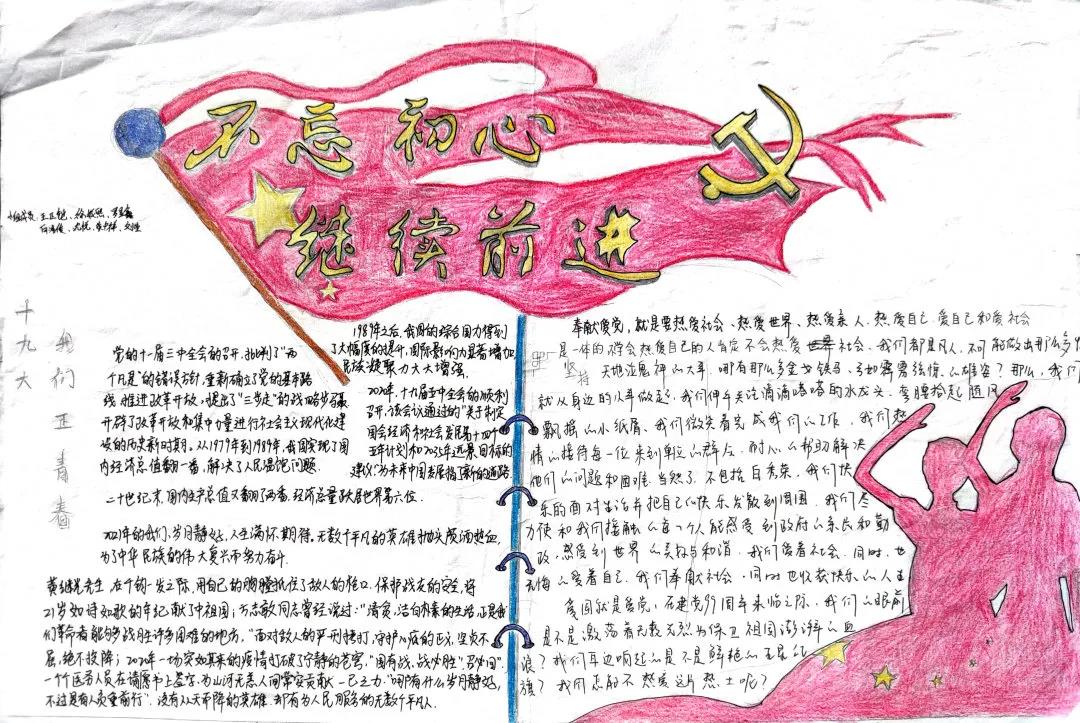 不忘初心
继续前进
小组成员:王正
十九大
我们正青春
党的十一届三中全会的召开,批判了"两
个凡是"的错误方针,重新确立了党的基本路
线,推进改革开放,提出了"三步走"的战略步骤
开辟了改革开放和集中力量进行社会主义现代化建
设的历史新时期。从1977年到1989年,我国实现了国
内经济总值翻一番,解决了人民温饱问题.
二十世纪末,国内生产总值又翻了两番,经济总量跃居世界第六位.
2021年的我们,岁月静好,人生满怀期待,无数个平凡的英雄抛头颅洒热血,
为了中华民族的伟大复兴而努力奋斗
1989年之后,我国的综合国力得到
了大幅度的提升,国际影响力显著增加,
民族凝聚力大大增强.
2020年,十九届五中全会的胜利
召开,该会议通过的"关于制定
国会经济和社会发展第十四个
五年计划和2035年远景目标的
建议"为未来中国发展指了新的道路
黄继光先生,在千钧一发之际,用自己的胸膛抵住了敌人的枪口,保护战友的安全,将
21岁如诗如歌的年纪献了中祖国;方志敏同志曾经说过:"清贫,洁白朴素的生活,正是我
们革命者能够战胜许多困难的地方."面对敌人的严刑拷打,守护心底的正义,坚贞不
屈,绝不投降;2020年一场突如其来的疫情打破了宁静的苍穹,"国有战,战必胜"召必回"
一个个医务人员在请愿书上签字,为山河无恙人间常安贡献一己之力."哪有什么岁月静好,
不过是有人负重前行".没有从天而降的英雄,却有为人民服务的无数个平凡人.
奉献爱党,就是要热爱社会、热爱世界、热爱亲人、热爱自己.爱自己和爱社会
是一体的.学会热爱自己的人肯定不会热爱世界社会.我们都是凡人,不可能做出那么多
坚持天地泣鬼神的大事,哪有那么多金戈铁马、
就从身边的小事做起.我们伸手关注滴滴嗒嗒的水龙头、弯腰拾起随风
飘摇的小纸屑.我们微笑着完成我们的工作,我们热
情的接待每一位来到单位的群众,耐心的帮助解决
他们的问题和困难.当然了,不包括自夸.我们快
乐的面对生活并把自己的快乐发散到周围,我们尽
力使和我们接触的每一个人能感受到政府的亲民和勤
政,感受到世界的美好与和谐.我们爱着社会,同时,也
无悔的爱着自己.我们奉献社会,同时也收获快乐的人生
爱国就是爱党,在建党99周年来临之际,我们的眼前
是不是激荡着无数先烈为保卫祖国澎湃的血
浪?我们耳边响起的是不是鲜艳的五星红
旗?我们怎能不热爱这片热土呢?